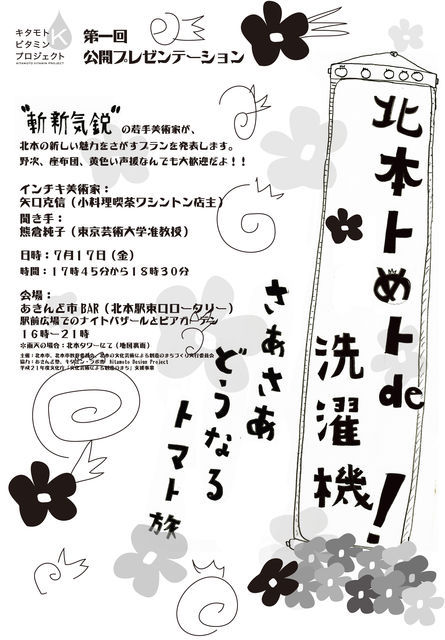 キタモト
ビタミン
プロジェクト
KITAMOTO VITAMIN PROJECT
K
第一回
公開プレゼンテーション
"斬新気鋭"の若手美術家が、
北本の新しい魅力をさがすプランを発表します。
野次、座布団、黄色い声援なんでも大歓迎だよ！！
インチキ美術家：
矢口克信（小料理喫茶ワシントン店主）
聞き手：
熊倉純子（東京芸術大学准教授）
日時：7月17日（金）
時間：17時45分から18時30分
会場：
あきんど市BAR（北本駅東口ロータリー）
駅前広場でのナイトバザールとビアガーデン
16時〜21時
※雨天の場合：北本タワーにて（地図裏面）
主催：北本市、北本市教育委員会、北本の文化芸術による創造のまちづくり実行委員会
平成21年度文化庁「文化芸術による創造のまち」支援事業
北本トめトde
洗濯機！
さあさあ
どうなる
トマト族